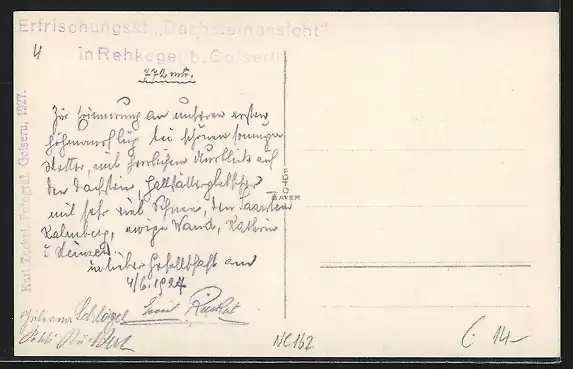 Erfrischungsst. „Dachsteinansicht"
in Rehkogel b. Goisern
4
772 mtr.
Zur Erinnerung an unseren ersten
Höhenausflug bei schönem sonnigen
Wetter, mit herrlichem Ausblick auf
den Dachstein, Hallstättergletscher
mit sehr viel Schnee, den Saarstein
Kalmberg, ewige Wand, Kathrin
u
in lieber Gesellschaft am
4/6. 1927
Juliana Schlögel Emil Ruckat
FOTO
BAYER
Karl Zechel, Fotograf, Goisern, 1927.
NC162
14-